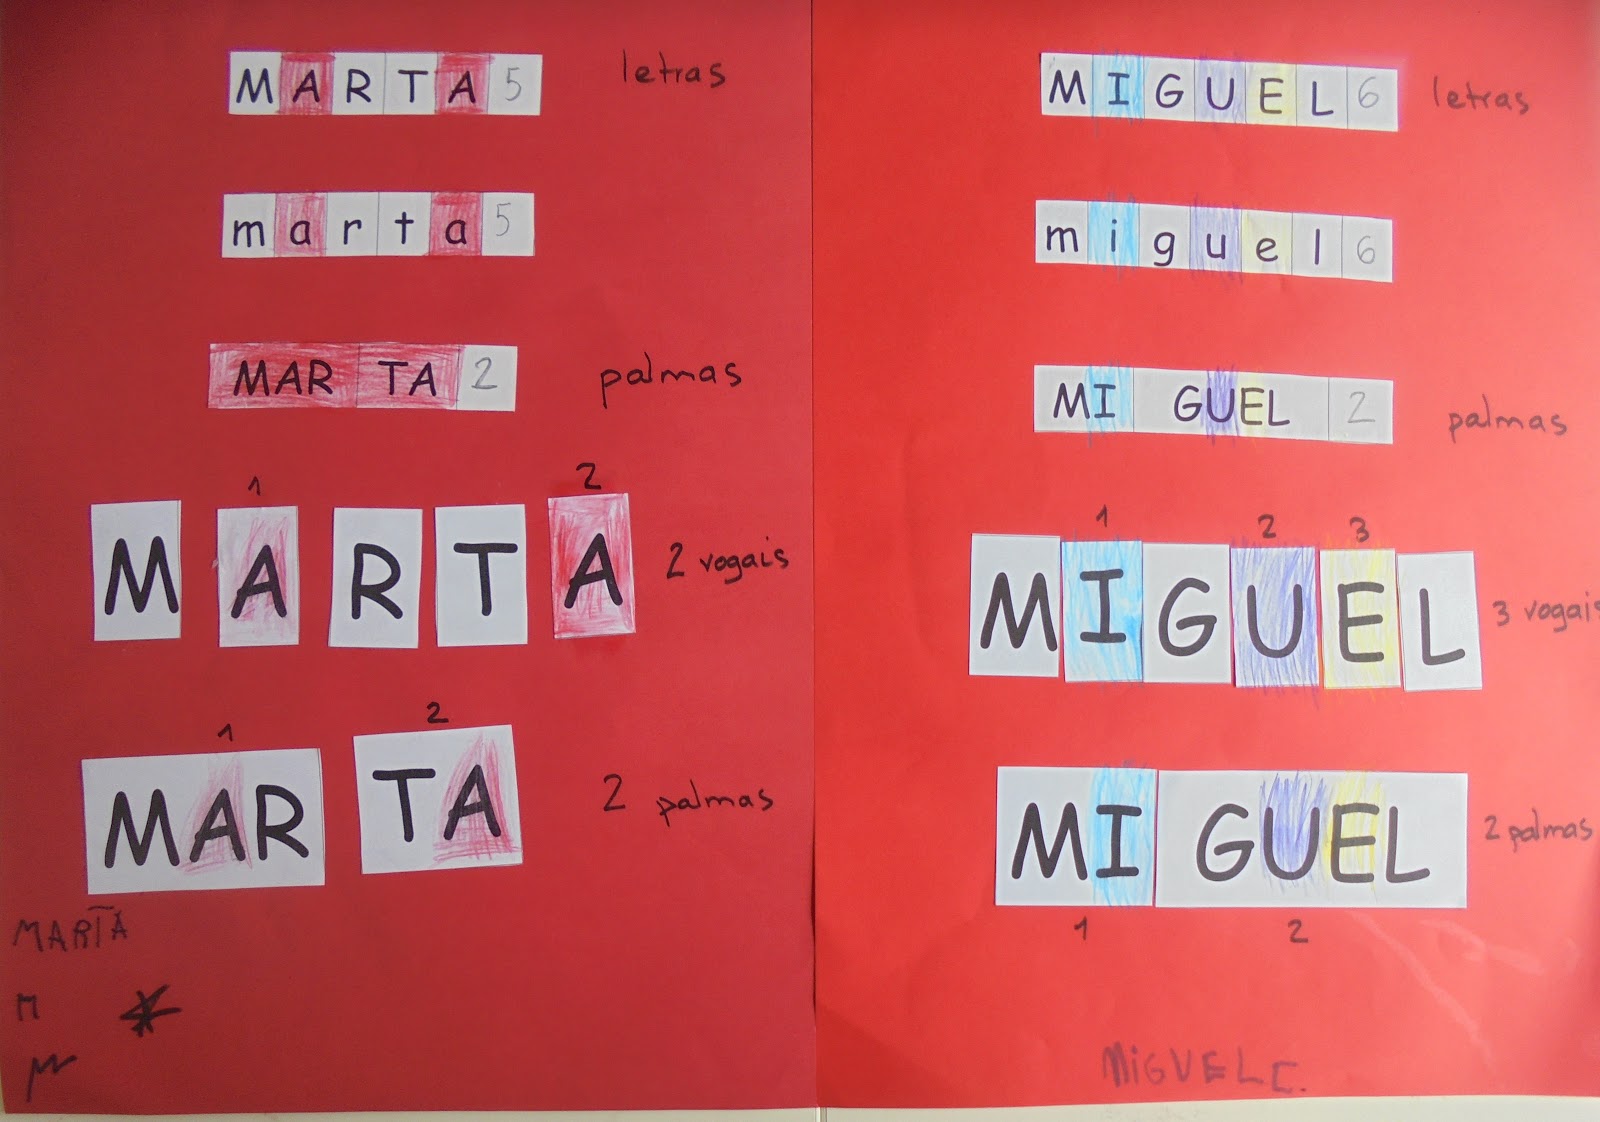 MARTA 5 letras
marta 5
MAR TA 2 palmas
1 2
M A R T A 2 vogais
1 2
MAR TA 2 palmas
MARTA
M
MIGUEL 6 letras
miguel 6
MI GUEL 2 palmas
1 2 3
M I G U E L 3 vogais
MI GUEL 2 palmas
1 2
MiGUEL C.